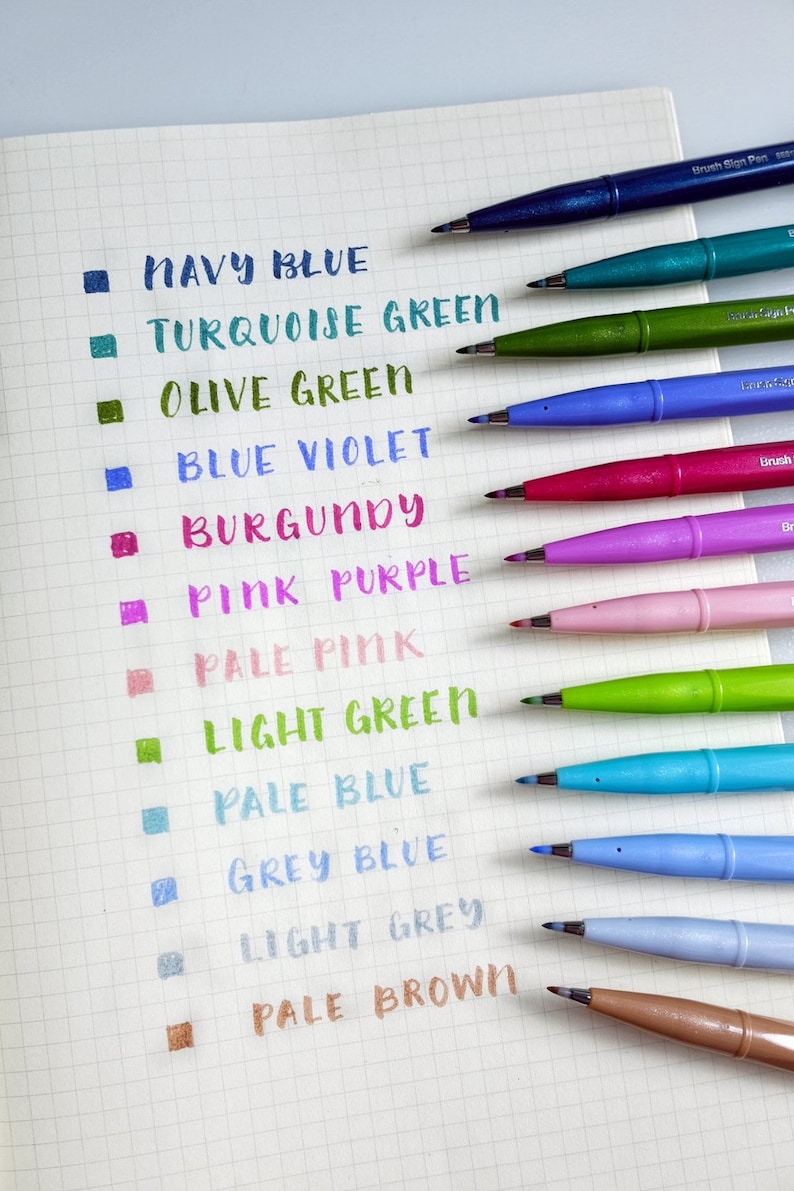 Brush Sign Pen
NAVY BLUE
TURQUOISE GREEN
Brush Sign
OLIVE GREEN
Brush Sign
BLUE VIOLET
Brush
BURGUNDY
PINK PURPLE
PALE PINK
LIGHT GREEN
PALE BLUE
GREY BLUE
LIGHT GREY
PALE BROWN